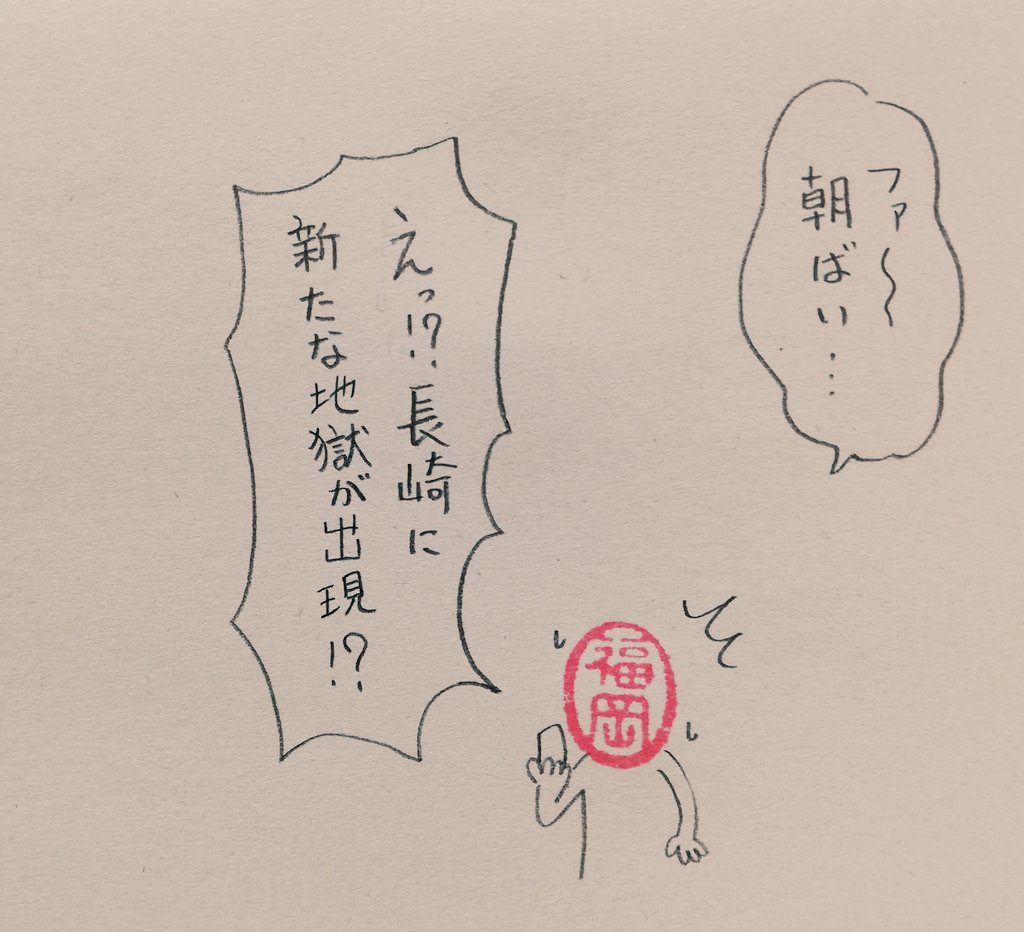 ファ〜
朝ばい…
えっ!?長崎に
新たな地獄が出現!?
福岡